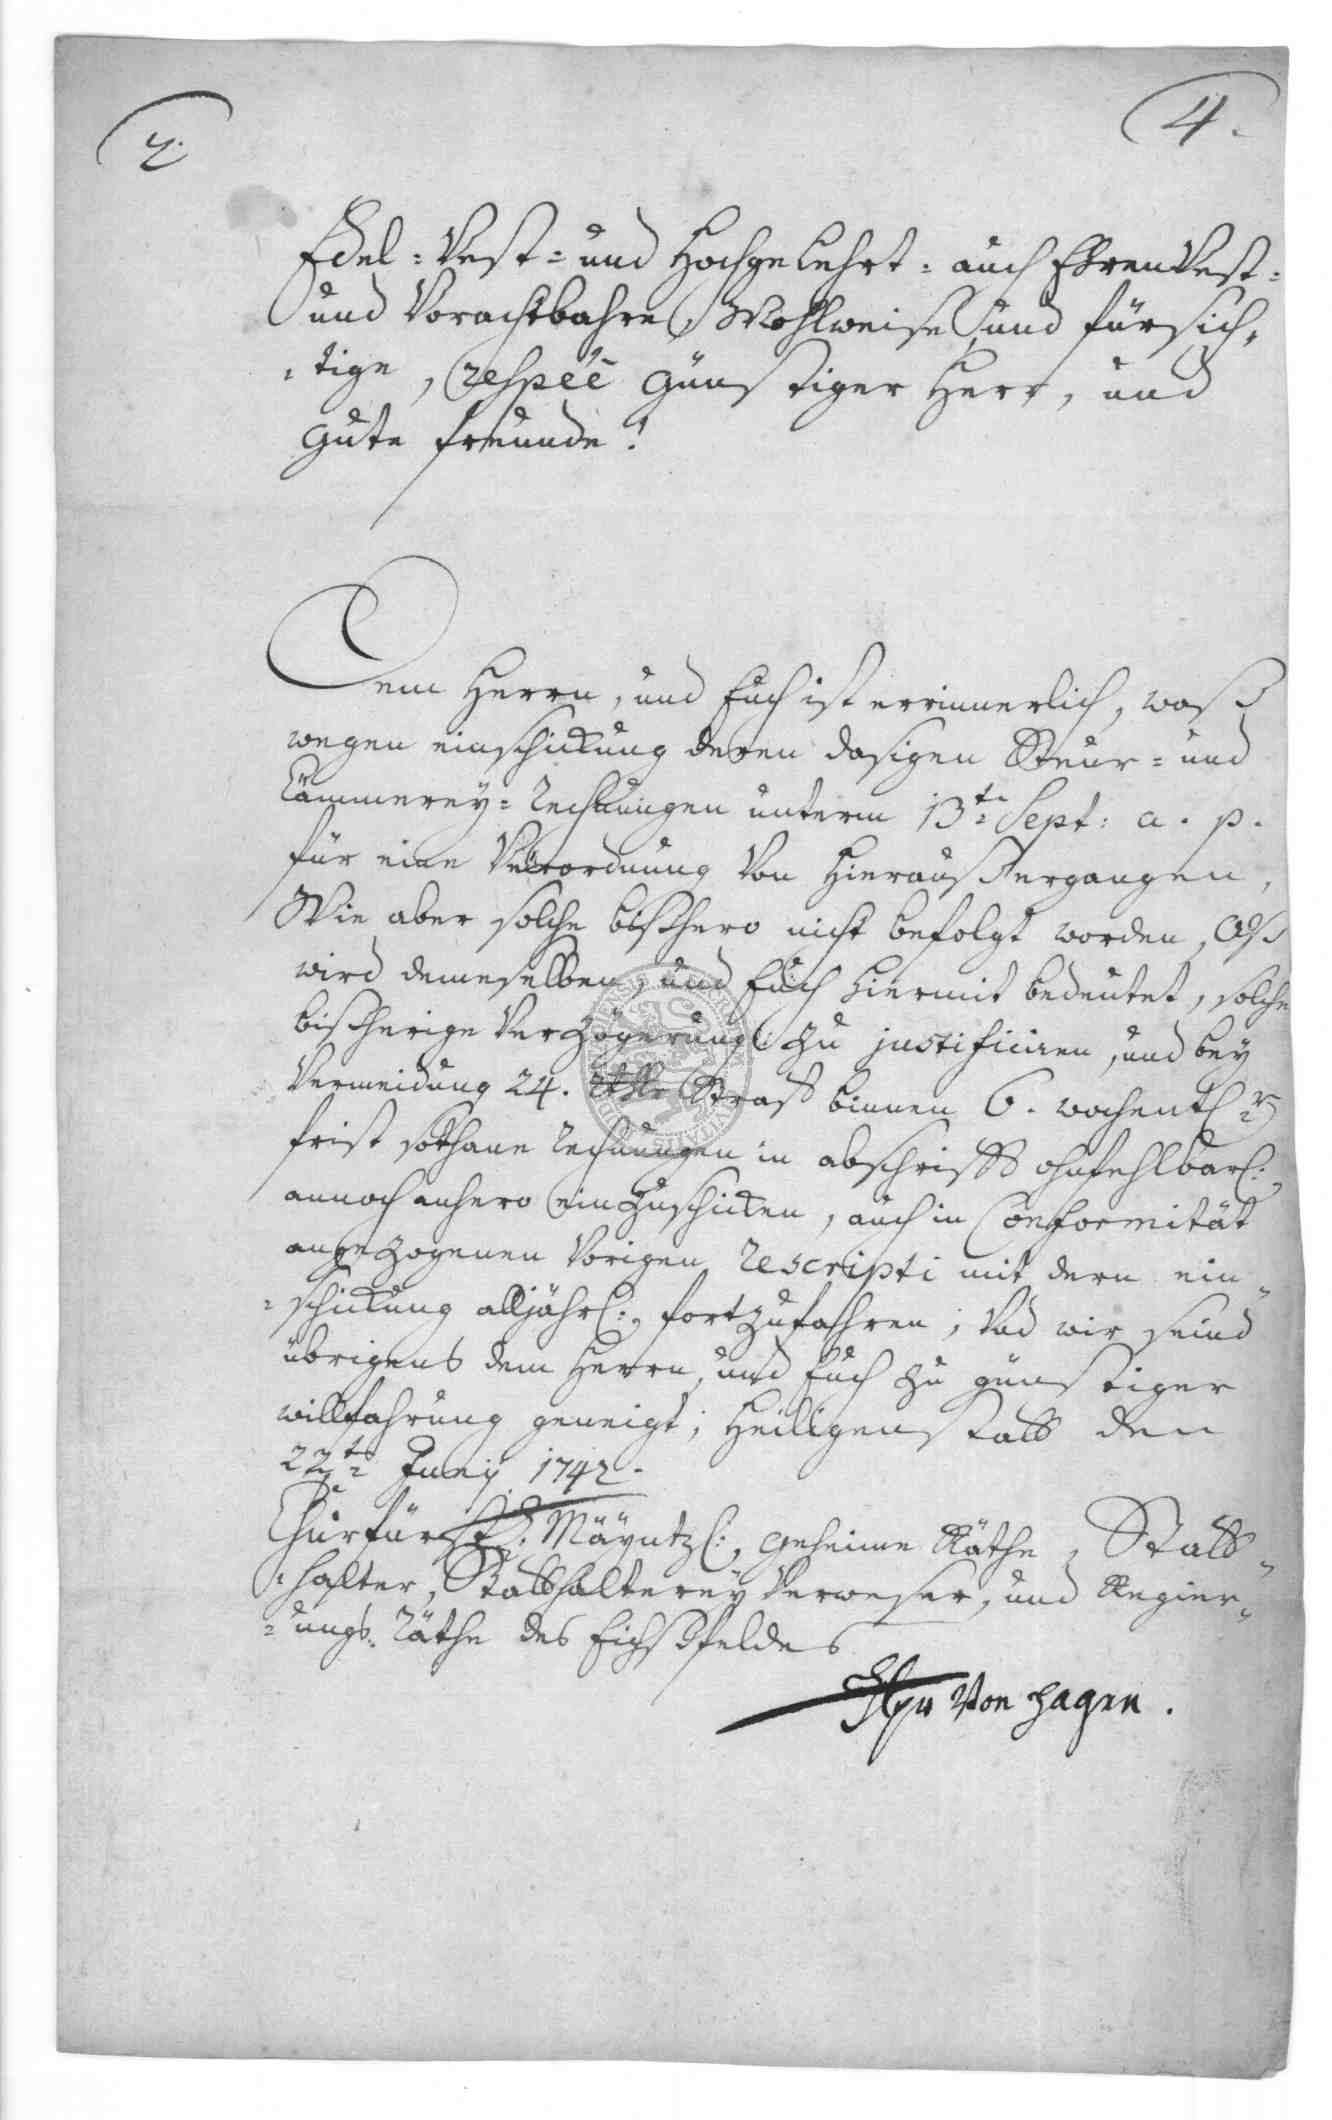 2.
4.
Edel- Vest- und Hochgelehrt- auch Ehrenvest-
und Vorachtbahre, Wohlweise und fürsich-
-tige, respée günstiger Herr, und
gute freunde!
Dem Herrn, und Euch ist errinnerlich, waß
wegen einschickung deren dasigen Steur- und
Cämmerey- rechnungen unterm 13te Sept: a. p.
für eine Verordnung von hierauß ergangen,
Wie aber solche bißhero nicht befolgt worden, Alß
wird demeselben, und Euch hiermit bedeutet, solche
bißherige Verzögerung zu justificiren, und bey
Vermeidung 24. rthlr Straff binnen 6. wochentl:r
frist sothane rechnungen in abschrifft ohnfehlbarl:
annoch anhero einzuschicken, auch in Conformität
angezogenen vorigen rescripti mit dern ein-
-schickung alljährl: fortzufahren; Und wir seind
übrigens dem Herrn, und Euch zu günstiger
willfahrung geneigt; Heiligenstatt den
22te Junij 1742.
Churfürstl: Mäyntzl: geheime Räthe, Statt-
-halter, Statthalterey Verweser, und Regier-
-ungs- räthe des Eichßfeldes
von Hagen.